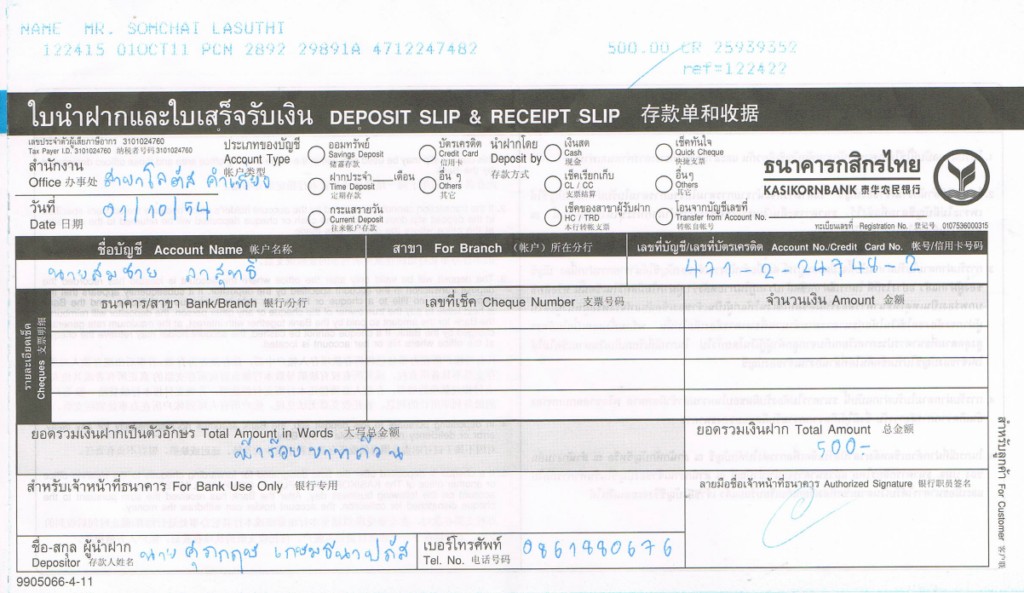 NAME MR. SOMCHAI LASUTHI
122415 01OCT11 PCN 2892 29891A 4712247482 500.00 CR 25939352
ref=122422
ใบนำฝากและใบเสร็จรับเงิน DEPOSIT SLIP & RECEIPT SLIP 存款单和收据
เลขประจำตัวผู้เสียภาษีอากร 3101024760
Tax Payer I.D. 3101024760 纳税者号码 3101024760
สำนักงาน
Office 办事处 สาขาโลตัส คำเที่ยง
วันที่
Date 日期 01/10/54
ประเภทของบัญชี
Account Type
帐户类型
ออมทรัพย์
Savings Deposit
储蓄存款
ฝากประจำ ____เดือน
Time Deposit
定期存款
กระแสรายวัน
Current Deposit
往来帐户存款
บัตรเครดิต
Credit Card
信用卡
อื่น ๆ
Others
其它
นำฝากโดย
Deposit by
存款方式
เงินสด
Cash
现金
เช็คเรียกเก็บ
CL / CC
支票结算
เช็คของสาขาผู้รับฝาก
HC / TRD
本行转帐支票
เช็คทันใจ
Quick Cheque
快捷支票
อื่นๆ
Others
其它
โอนจากบัญชีเลขที่
Transfer from Account No.
转帐自帐号
ธนาคารกสิกรไทย
KASIKORNBANK 泰华农民银行
ทะเบียนเลขที่ Registration No. 登记号 0107536000315
ชื่อบัญชี Account Name 帐户名称 สาขา For Branch (帐户) 所在分行 เลขที่บัญชี/เลขที่บัตรเครดิต Account No./Credit Card No. 帐号/信用卡号码
นายสมชาย ลาสุทธิ 471-2-24748-2
รายละเอียดเช็ค
Cheques 支票明细
ธนาคาร/สาขา Bank/Branch 银行/分行 เลขที่เช็ค Cheque Number 支票号码 จำนวนเงิน Amount 金额
ยอดรวมเงินฝากเป็นตัวอักษร Total Amount in Words 大写总金额 ยอดรวมเงินฝาก Total Amount 总金额
ห้าร้อยบาทถ้วน 500-
สำหรับเจ้าหน้าที่ธนาคาร For Bank Use Only 银行专用 ลายมือชื่อเจ้าหน้าที่ธนาคาร Authorized Signature 银行职员签名
ชื่อ-สกุล ผู้นำฝาก
Depositor 存款人姓名 นาย ศุภกฤษ
เบอร์โทรศัพท์
Tel. No. 电话号码 0861880676
9905066-4-11
สำหรับลูกค้า For Customer 客户联